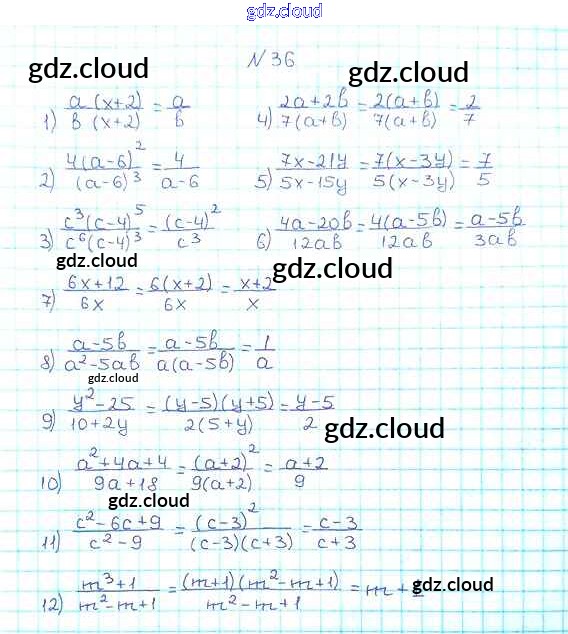 gdz.cloud
N 36
gdz.cloud gdz.cloud
1) a(x+2)/b(x+2) = a/b 4) 2a+2b/7(a+b) = 2(a+b)/7(a+b) = 2/7
gdz.cloud
2) 4(a-6)²/(a-6)³ = 4/a-6 5) 7x-21y/5x-15y = 7(x-3y)/5(x-3y) = 7/5
3) c³(c-4)⁵/c⁶(c-4)³ = (c-4)²/c³ 6) 4a-20b/12ab = 4(a-5b)/12ab = a-5b/3ab
gdz.cloud gdz.cloud
7) 6x+12/6x = 6(x+2)/6x = x+2/x
8) a-5b/a²-5ab = a-5b/a(a-5b) = 1/a
gdz.cloud
9) y²-25/10+2y = (y-5)(y+5)/2(5+y) = y-5/2
gdz.cloud
10) a²+4a+4/9a+18 = (a+2)²/9(a+2) = a+2/9
gdz.cloud
11) c²-6c+9/c²-9 = (c-3)²/(c-3)(c+3) = c-3/c+3
12) m³+1/m²-m+1 = (m+1)(m²-m+1)/m²-m+1 = m+
gdz.cloud